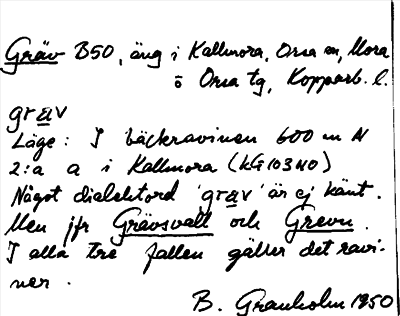 Gräv B50, äng i Kallmora, Orsa sn, Mora
o Orsa tg, Kopparb. l.
grav
Läge: I bäckravinen 600 m N
2:a a i Kallmora (kG103N0)
Något dialektord 'grav' är ej känt.
Men jfr Grävsvall och Grevn.
I alla tre fallen gäller det ravi-
ner.
B. Granholm 1950